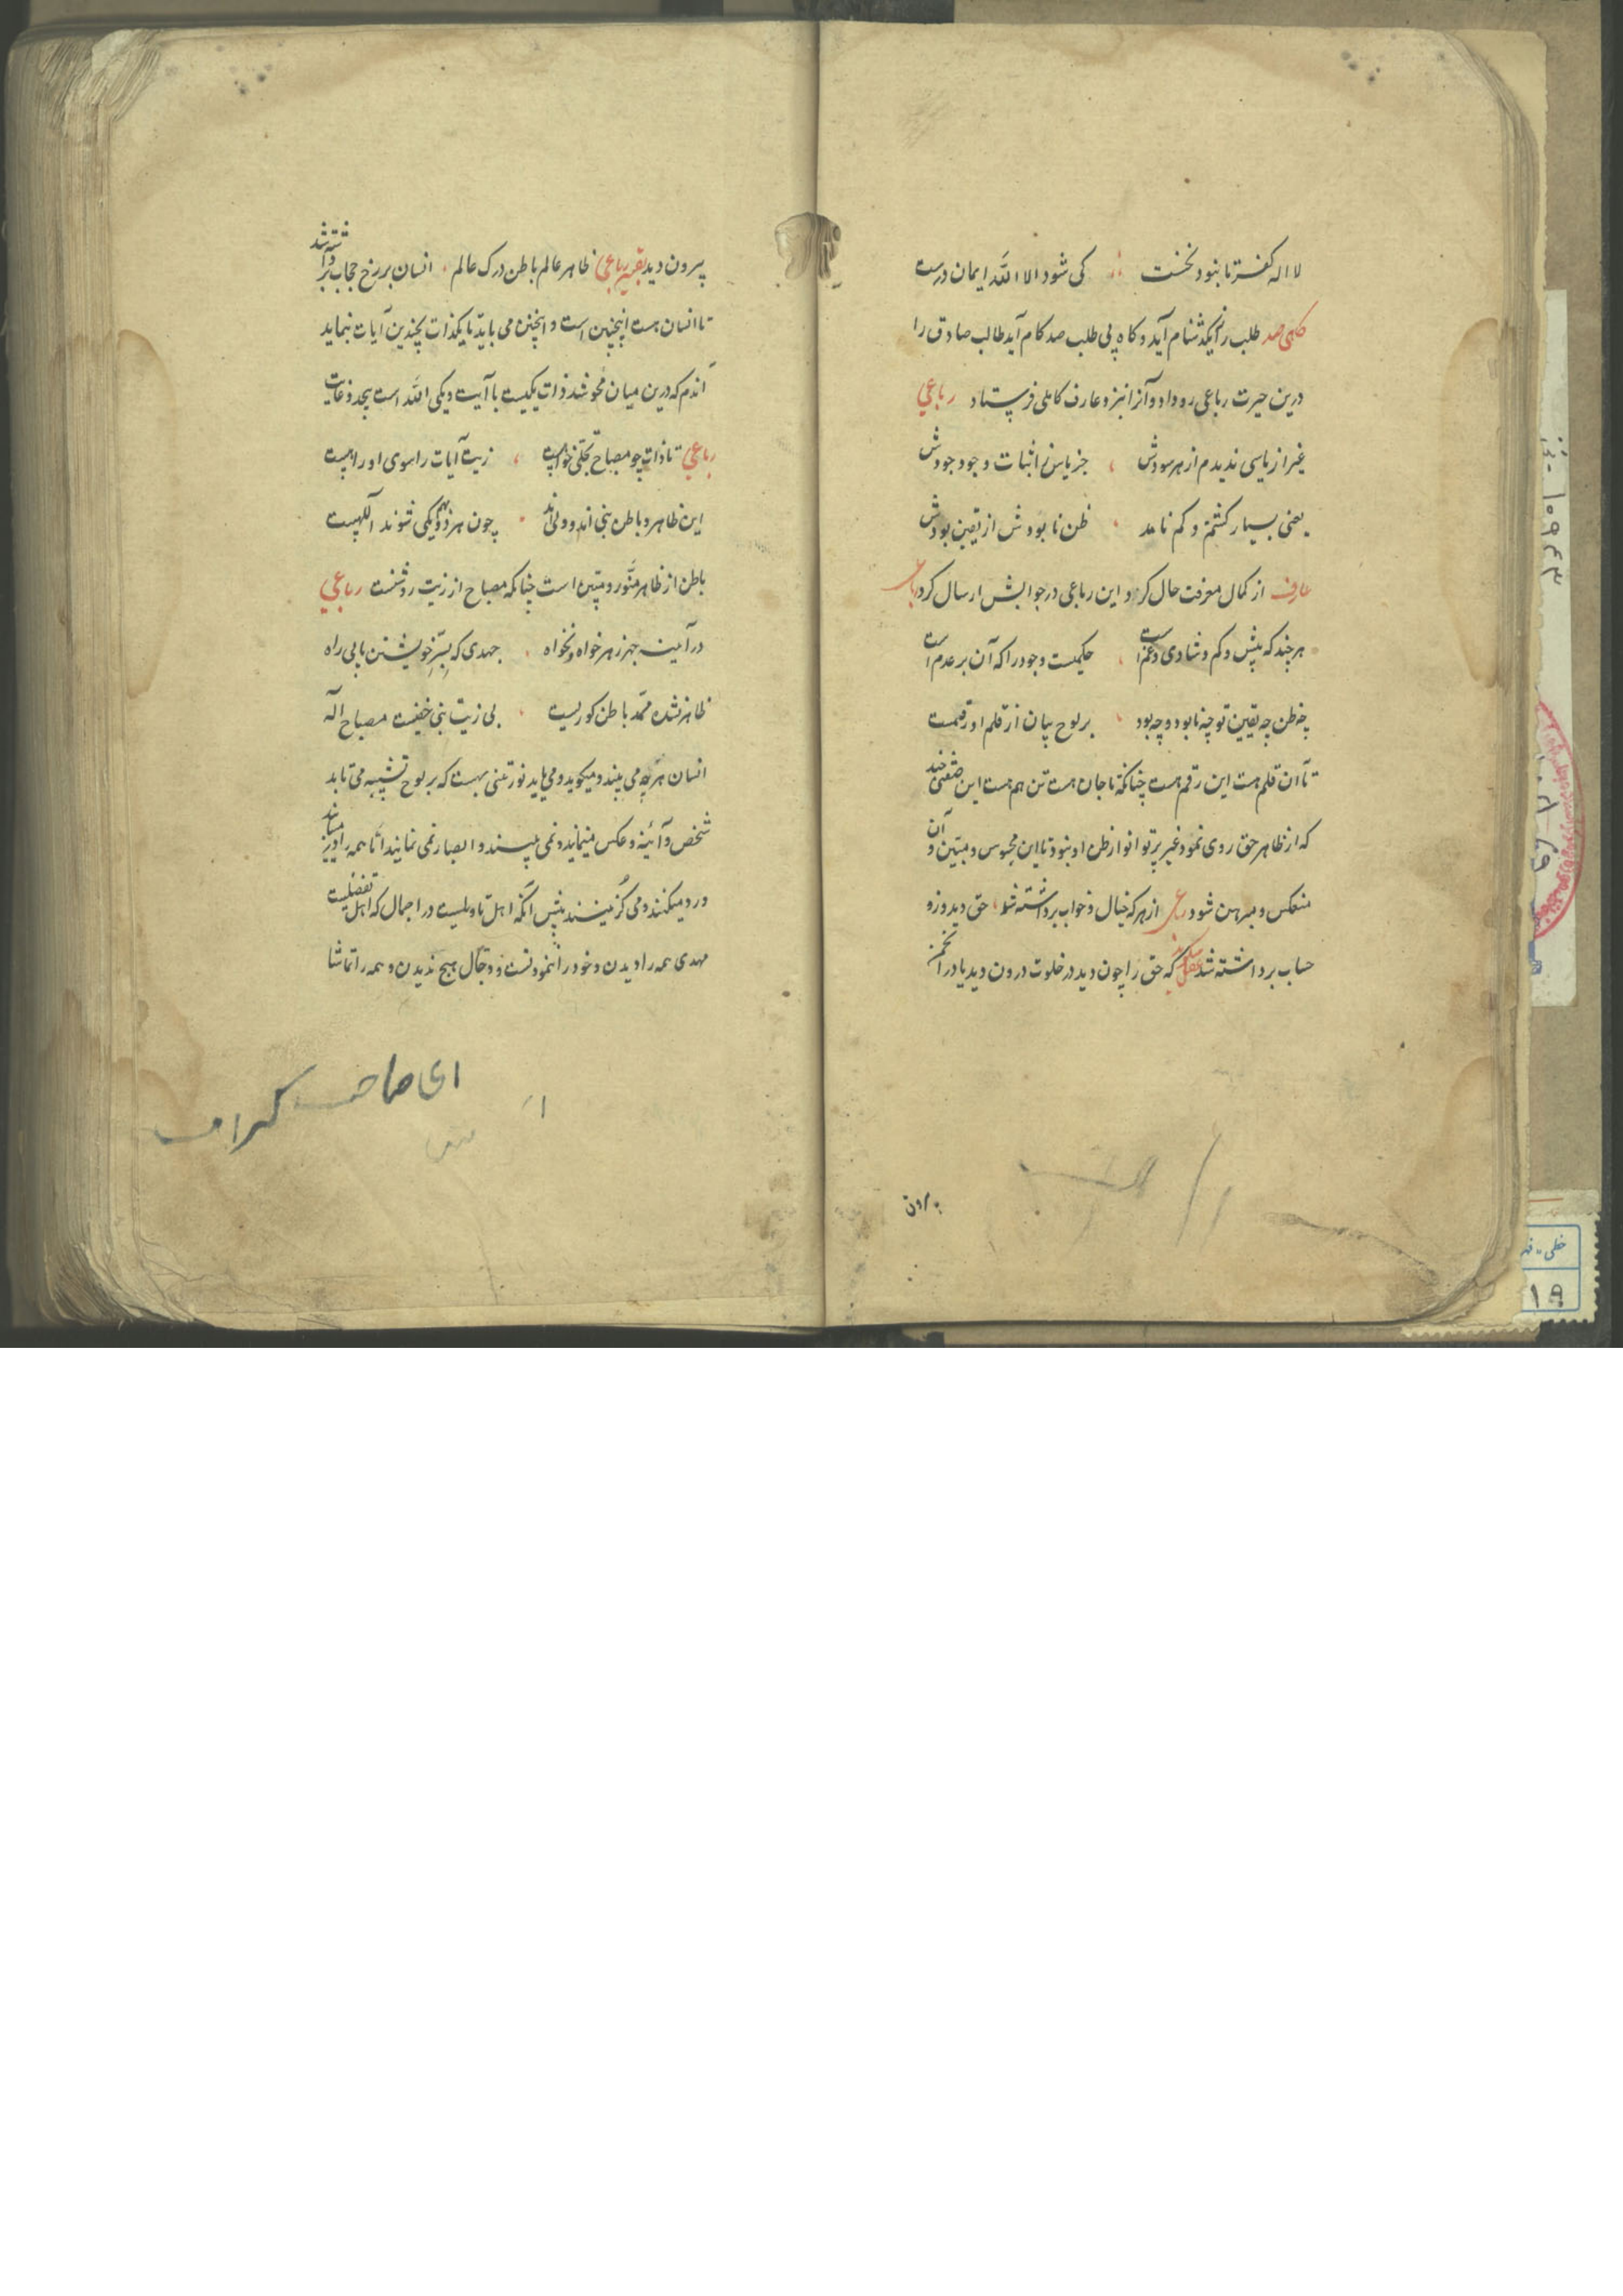 لا اله کفر تا نبود نخست کی شود الا الله ایمان درست
کاهی صد طلب را یکدشنام آید و کاه بی طلب صد کام آید طالب صادق را
درین حیرت رباعی رو داد و آنرا نیز و عارف کاملی فرستاد رباعی
غیر از یاسی ندیدم از هر سودش جز یاس اثبات وجود جودش
یعنی بسیار کشتم و کم نامد ظن نابودش از یقین بودش
عارف از کمال معرفت حال کرد و این رباعی در جوابش ارسال کرد رباعی
هر چند که بیش و کم و شادی و غم است حکمیست وجود را که آن بر عدم است
چه ظن چه یقین تو چه نابود و چه بود بر لوح بیان از قلم او رقمست
تا آن قلم هست این رقم هست چنانکه تا جان هست تن هم هست این
که از ظاهر حق روی نمود غیر پرتو انوار ظن او نبود تا این محسوس و مبین و آن
منعکس و مبرهن شود رباعی از هر که خیال و خواب برداشته شد حق دید و زو
حساب برداشته شد که حق را چون دید در خلوت درون دید یا در انجمن
برون
بیرون دید بقیه رباعی ظاهر عالم باطن درک عالم انسان برزخ حجاب برداشته شد
تا انسان هست اینچنین است و اینچنین می باید تا یکذات بچندین آیات نماید
آندم که درین میان محو شد ذات یکیست با آیت و یکی الله است بیحد و غایت
رباعی تا ذات چو مصباح تجلی زیت آیات را سوی او راهیست
این ظاهر و باطن نبی اند و ولی اند چون هر دو یکی شوند اللهیست
باطن از ظاهر منور و مبین است چنانکه مصباح از زیت روشنست رباعی
در آمینه جز زهر خواه و نخواه جهدی که بسر خویشتن یابی راه
ظاهر نشده ممد باطن کوریست بی زیت نبی خفیست مصباح اله
انسان هر چه می بیند و میکوید و می یابد نور تنی هست که بر لوح تشبیه می تابد
شخص و آئینه و عکس مینماید و نمی بیند و ابصار نمی نمایند اما همه را در
ورد میکنند و می کزینند پیش آنکه اهل تاویلست در اجمال که اهل تفضیلست
مهدی همه را دیدن و خود را ننمودنست و دجال هیچ ندیدن و همه را تماشا
ای صاحب کرامت